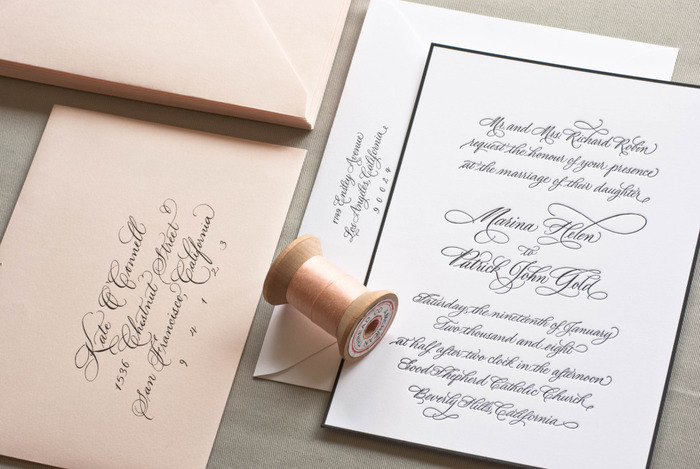 Kate O'Connell
1536 Chestnut Street
San Francisco, California
9 4 1 2 3
1749 Emiley Avenue
Los Angeles, California
9 0 0 2 4
Mr. and Mrs. Richard Robin
request the honour of your presence
at the marriage of their daughter
Marina Helen
to
Patrick John Gold
Saturday the nineteenth of January
Two thousand and eight
at half after two clock in the afternoon
Good Shepherd Catholic Church
Beverly Hills, California